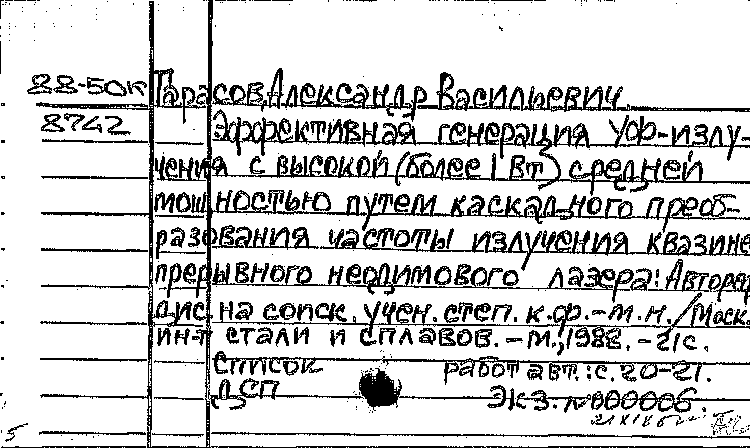 88-50к Тарасов, Александр Васильевич.
8742 Эффективная генерация УФ-излу-
чения с высокой (более 1 Вт) средней
мощностью путем каскадного преоб-
разования частоты излучения квазине
прерывного неодимового лазера: Авторед
дис. на соиск. учен. степ. к.ф.-м.н./Моск.
ин-т стали и сплавов. -М., 1988. -21с.
Список работ авт.: с. 20-21.
ДСП Экз. №000006.
5